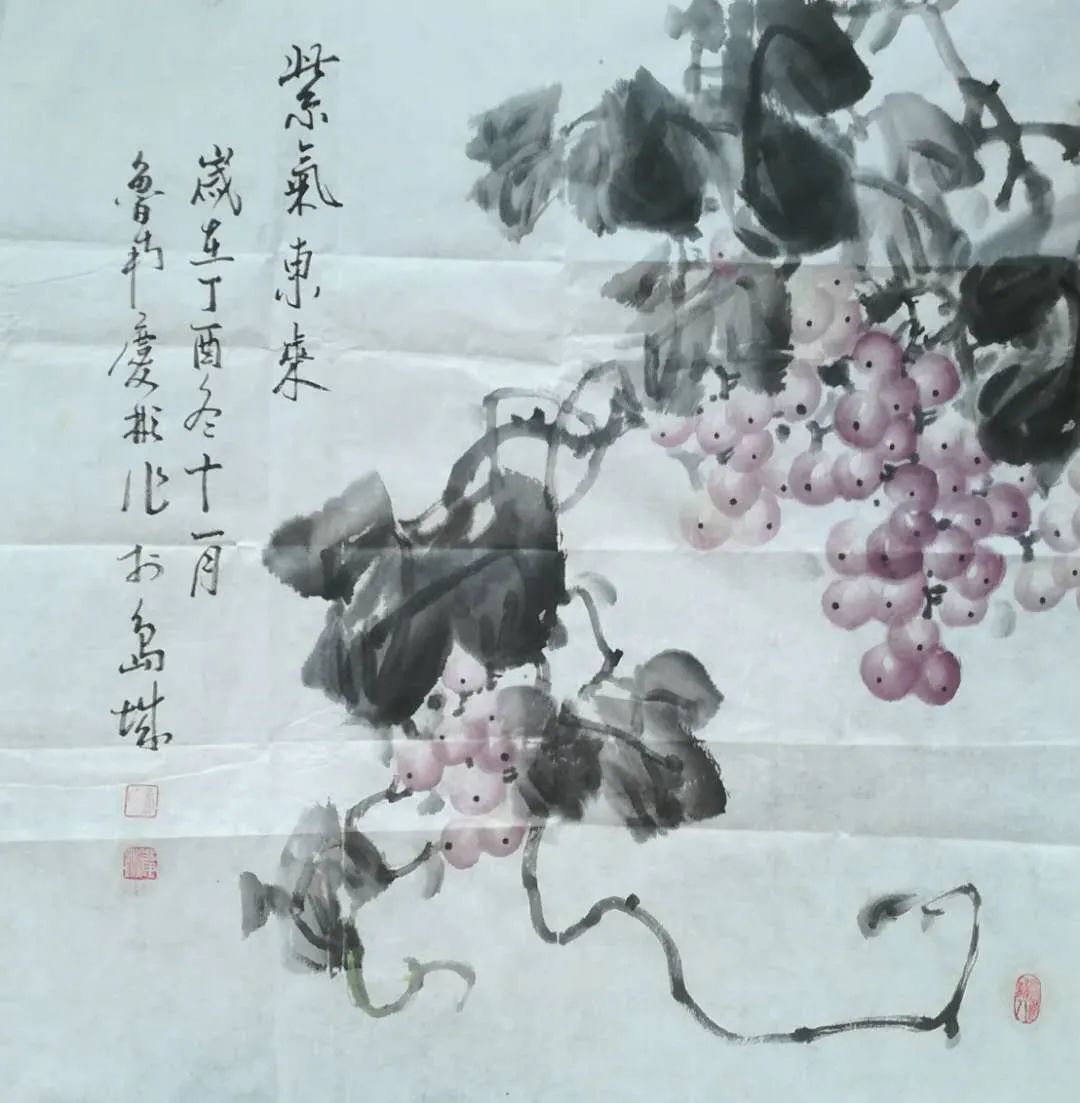 紫氣東來
歲在丁酉冬十一月
魯中慶彬作於島城